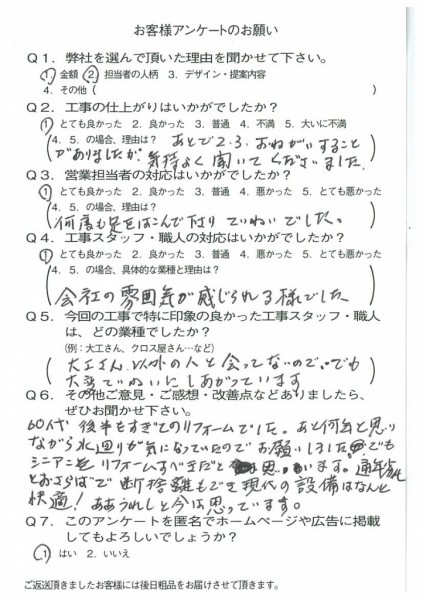 お客様アンケートのお願い
Q1．弊社を選んで頂いた理由を聞かせて下さい。
①金額 ②担当者の人柄 3．デザイン・提案内容
4．その他（ ）
Q2．工事の仕上がりはいかがでしたか？
①とても良かった 2．良かった 3．普通 4．不満 5．大いに不満
(4．5．の場合、理由は？ あとで2.3.おねがいすること
がありましたが 気持よく聞いてくださいました)
Q3．営業担当者の対応はいかがでしたか？
①とても良かった 2．良かった 3．普通 4．悪かった 5．とても悪かった
(4．5．の場合、理由は？
何度も足をはこんで下さり ていねいでした。)
Q4．工事スタッフ・職人の対応はいかがでしたか？
①とても良かった 2．良かった 3．普通 4．悪かった 5．とても悪かった
(4．5．の場合、具体的な業種と理由は？
会社の雰囲気が感じられる様でした)
Q5．今回の工事で特に印象の良かった工事スタッフ・職人
は、どの業種でしたか？
(例：大工さん、クロス屋さん…など)
(大工さん以外の人と会ってないので。でも
大変ていねいにしあがっています)
Q6．その他ご意見・ご感想・改善点などありましたら、
ぜひお聞かせ下さい。
60代 後半もすぎてのリフォームでした。あと何年と思い
ながら水廻りが気になっていたのでお願いしました。でも
シニアこそリフォームすべきだと 思います。
とおさらばで 断捨離もでき 現代の設備はなんと
快適！ああうれしと今は思っています。
Q7．このアンケートを匿名でホームページや広告に掲載
してもよろしいでしょうか？
①はい 2．いいえ
ご返送頂きましたお客様には後日粗品をお届けさせて頂きます。